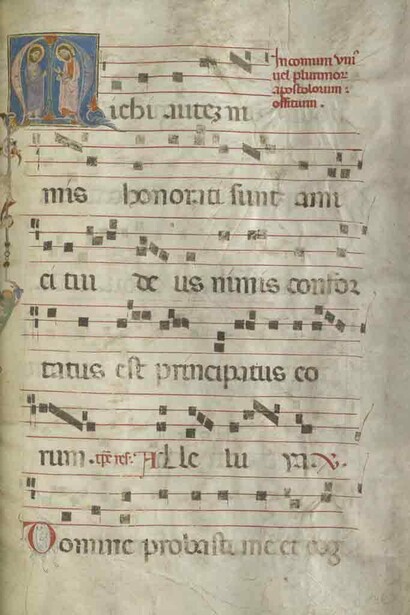 In comuni uni⁹
uel plurimor
apostolorum :
offitium .
Michi autez ni
mis honorati sunt ami
ci tui de us nimis confor
tatus est principatus eo
rum . Alle lu ya
Domine probasti me et cog